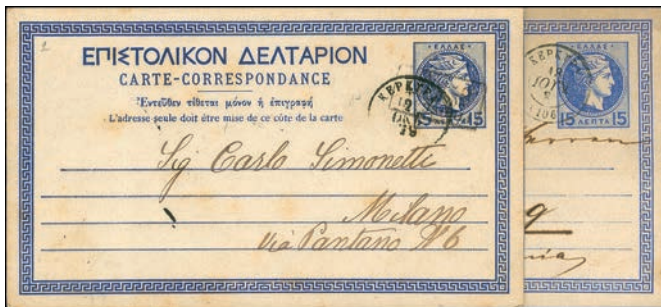 ΕΠΙΣΤΟΛΙΚΟΝ ΔΕΛΤΑΡΙΟΝ
CARTE-CORRESPONDANCE
Ἐντεῦθεν τίθεται μόνον ἡ ἐπιγραφή
L'adresse seule doit être mise de ce côte de la carte
ΕΛΛΑΣ
15 15
Sig Carlo Simonetti
Milano
Via Pantano N 6
ΕΛΛΑΣ
15 ΛΕΠΤΑ 15